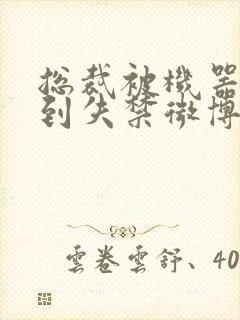 総裁被機器
到失禁微博
雲卷雲舒、40